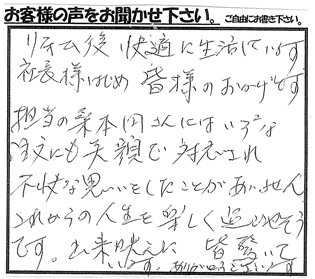 お客様の声をお聞かせ下さい。ご自由にお書き下さい。
リフォーム後 快適に生活しています
社長様はじめ 皆様のおかげです
担当の さんにはいろいろな
注文にも笑顔で対応され
不快な思いをしたことがありません
これからの人生を楽しく過ごせそう
です。出来映えに 皆驚いて
います。ありがとうございます